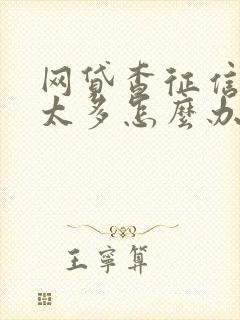 网贷查征信
太多怎麼办
王寧算